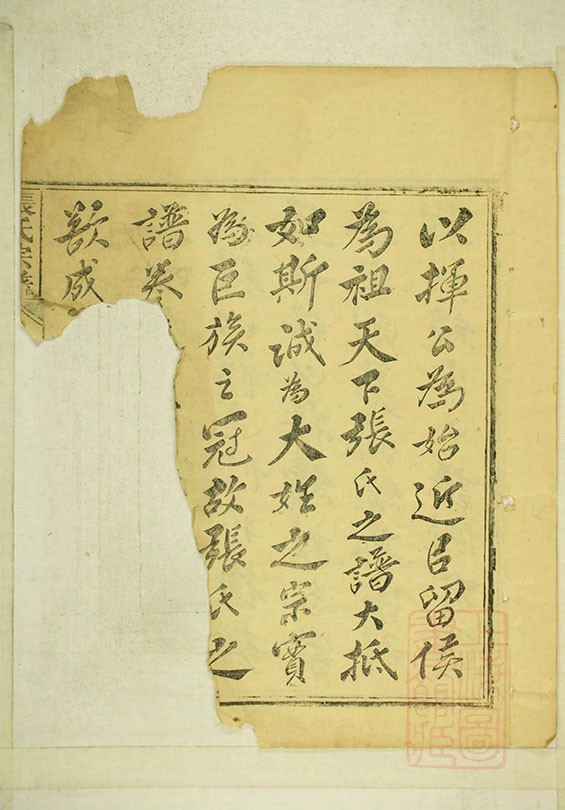 以揮公為始近㠯留侯
為祖天下張氏之譜大抵
如斯誠為大姓之宗實
為巨族之冠故張氏之
譜卷
歘成
張氏宗譜